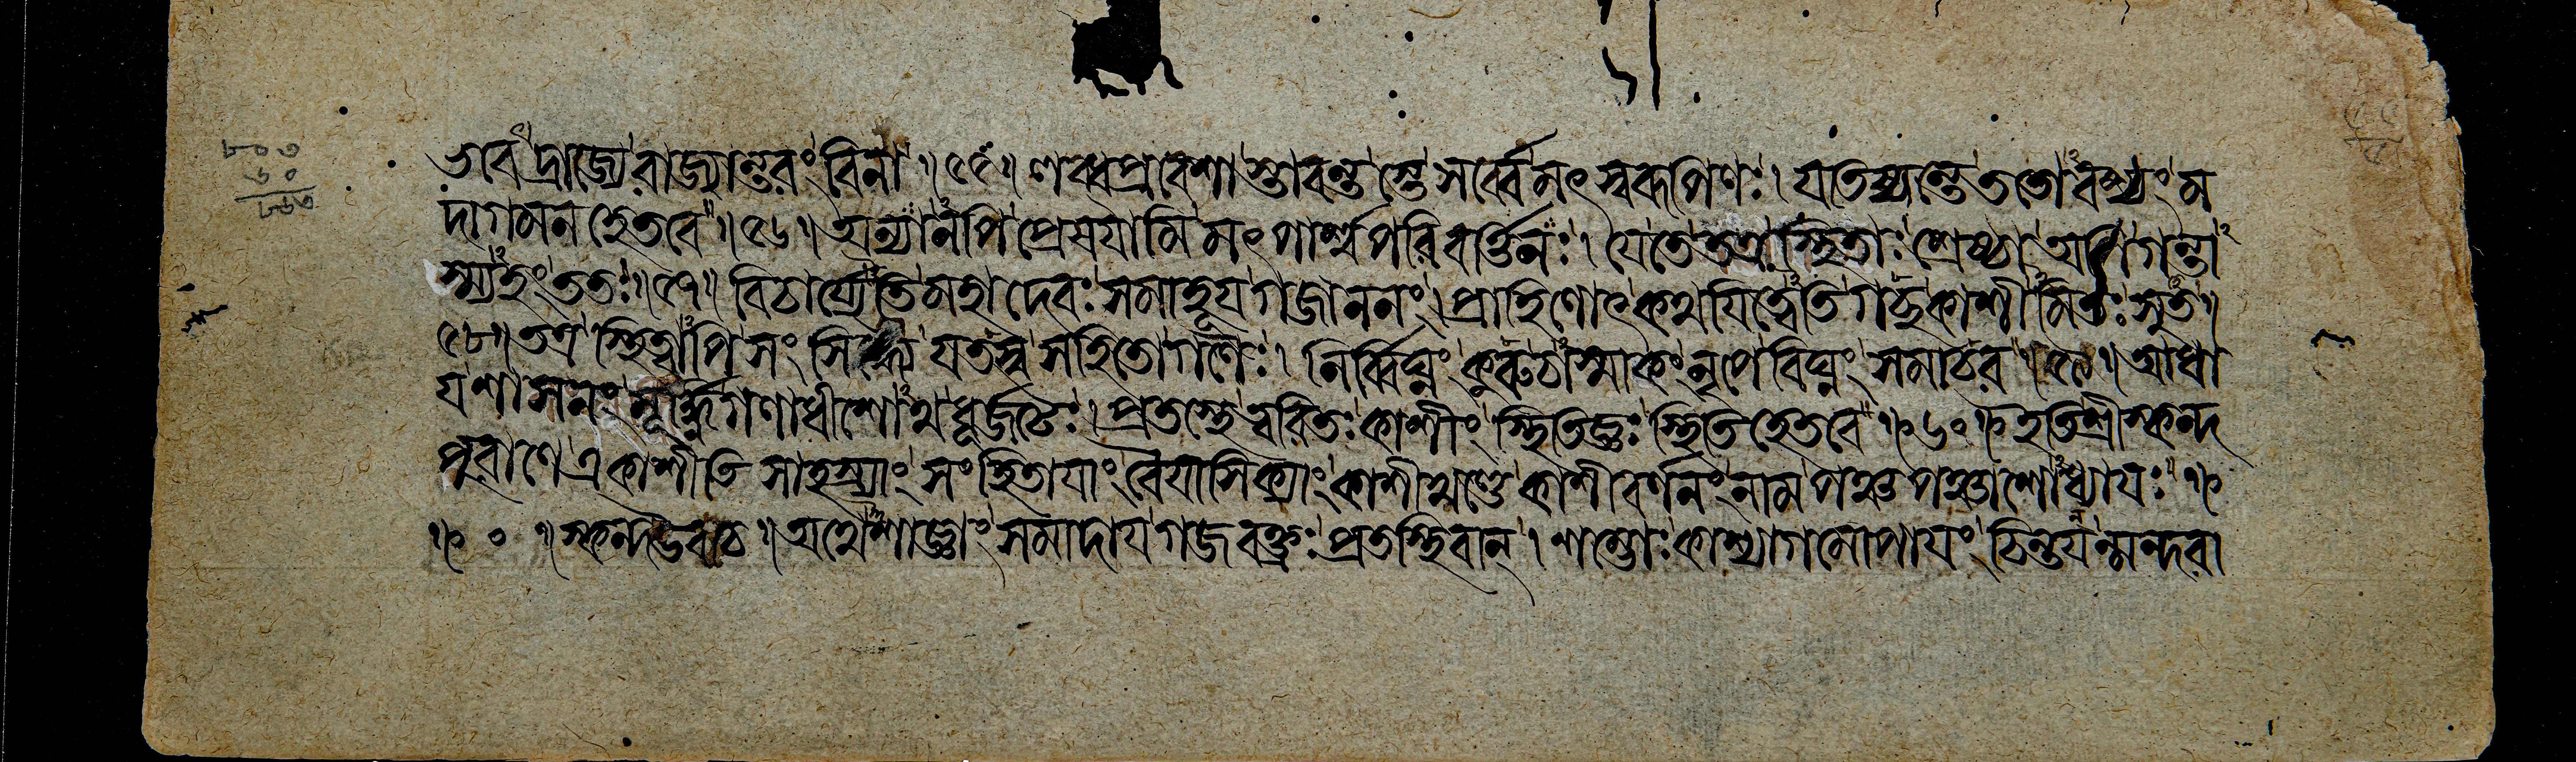 ভবেদ্রাজ্যে রাজ্যান্তরং বিনা ॥ ৫৫ ॥ লব্ধপ্রবেশাস্তাবন্তস্তে সর্ব্বে মৎস্বরূপিণঃ । যতিষ্যন্তে ততোবশ্যং ম
দাগমনহেতবে ॥ ৫৬ ॥ অন্যানপি প্রেষযামি মৎপার্শ্বপরিবর্ত্তিনঃ । যেতে তত্র স্থিতাঃ শ্রেষ্ঠা অপি গন্তা
স্ম্যহং ততঃ ॥ ৫৭ ॥ বিচার্য্যেতি মহাদেবঃ সমাহূয গজাননং । প্রাহিণোৎ কথযিত্বেতি গচ্ছ কাশীমিতঃ সুত ॥
৫৮ ॥ তত্র স্থিত্বাপি সংসিদ্ধ্যৈ যতস্ব সহিতো গণৈঃ । নির্ব্বিঘ্নং কুরু চাস্মাকং নৃপে বিঘ্নং সমাচর ॥ ৫৯ ॥ আধা
য শাসনং মূর্দ্ধ্নি গণাধীশোথ ধূর্জটেঃ । প্রতস্থে ত্বরিতঃ কাশীং স্থিতিজ্ঞঃ স্থিতিহেতবে ॥ ৬০ ॥ ইতি শ্রীস্কন্দ
পুরাণে একাশীতিসাহস্র্যাং সংহিতাযাং বৈযাসিক্যাং কাশীখণ্ডে কাশীবর্ণনং নাম পঞ্চপঞ্চাশোধ্যাযঃ ॥
॥ ० ॥ স্কন্দ উবাচ ॥ অথেশাজ্ঞাং সমাদায গজবক্ত্রঃ প্রতস্থিবান্ । শম্ভোঃ কাশ্যাগমোপাযং চিন্তযন্মন্দরা